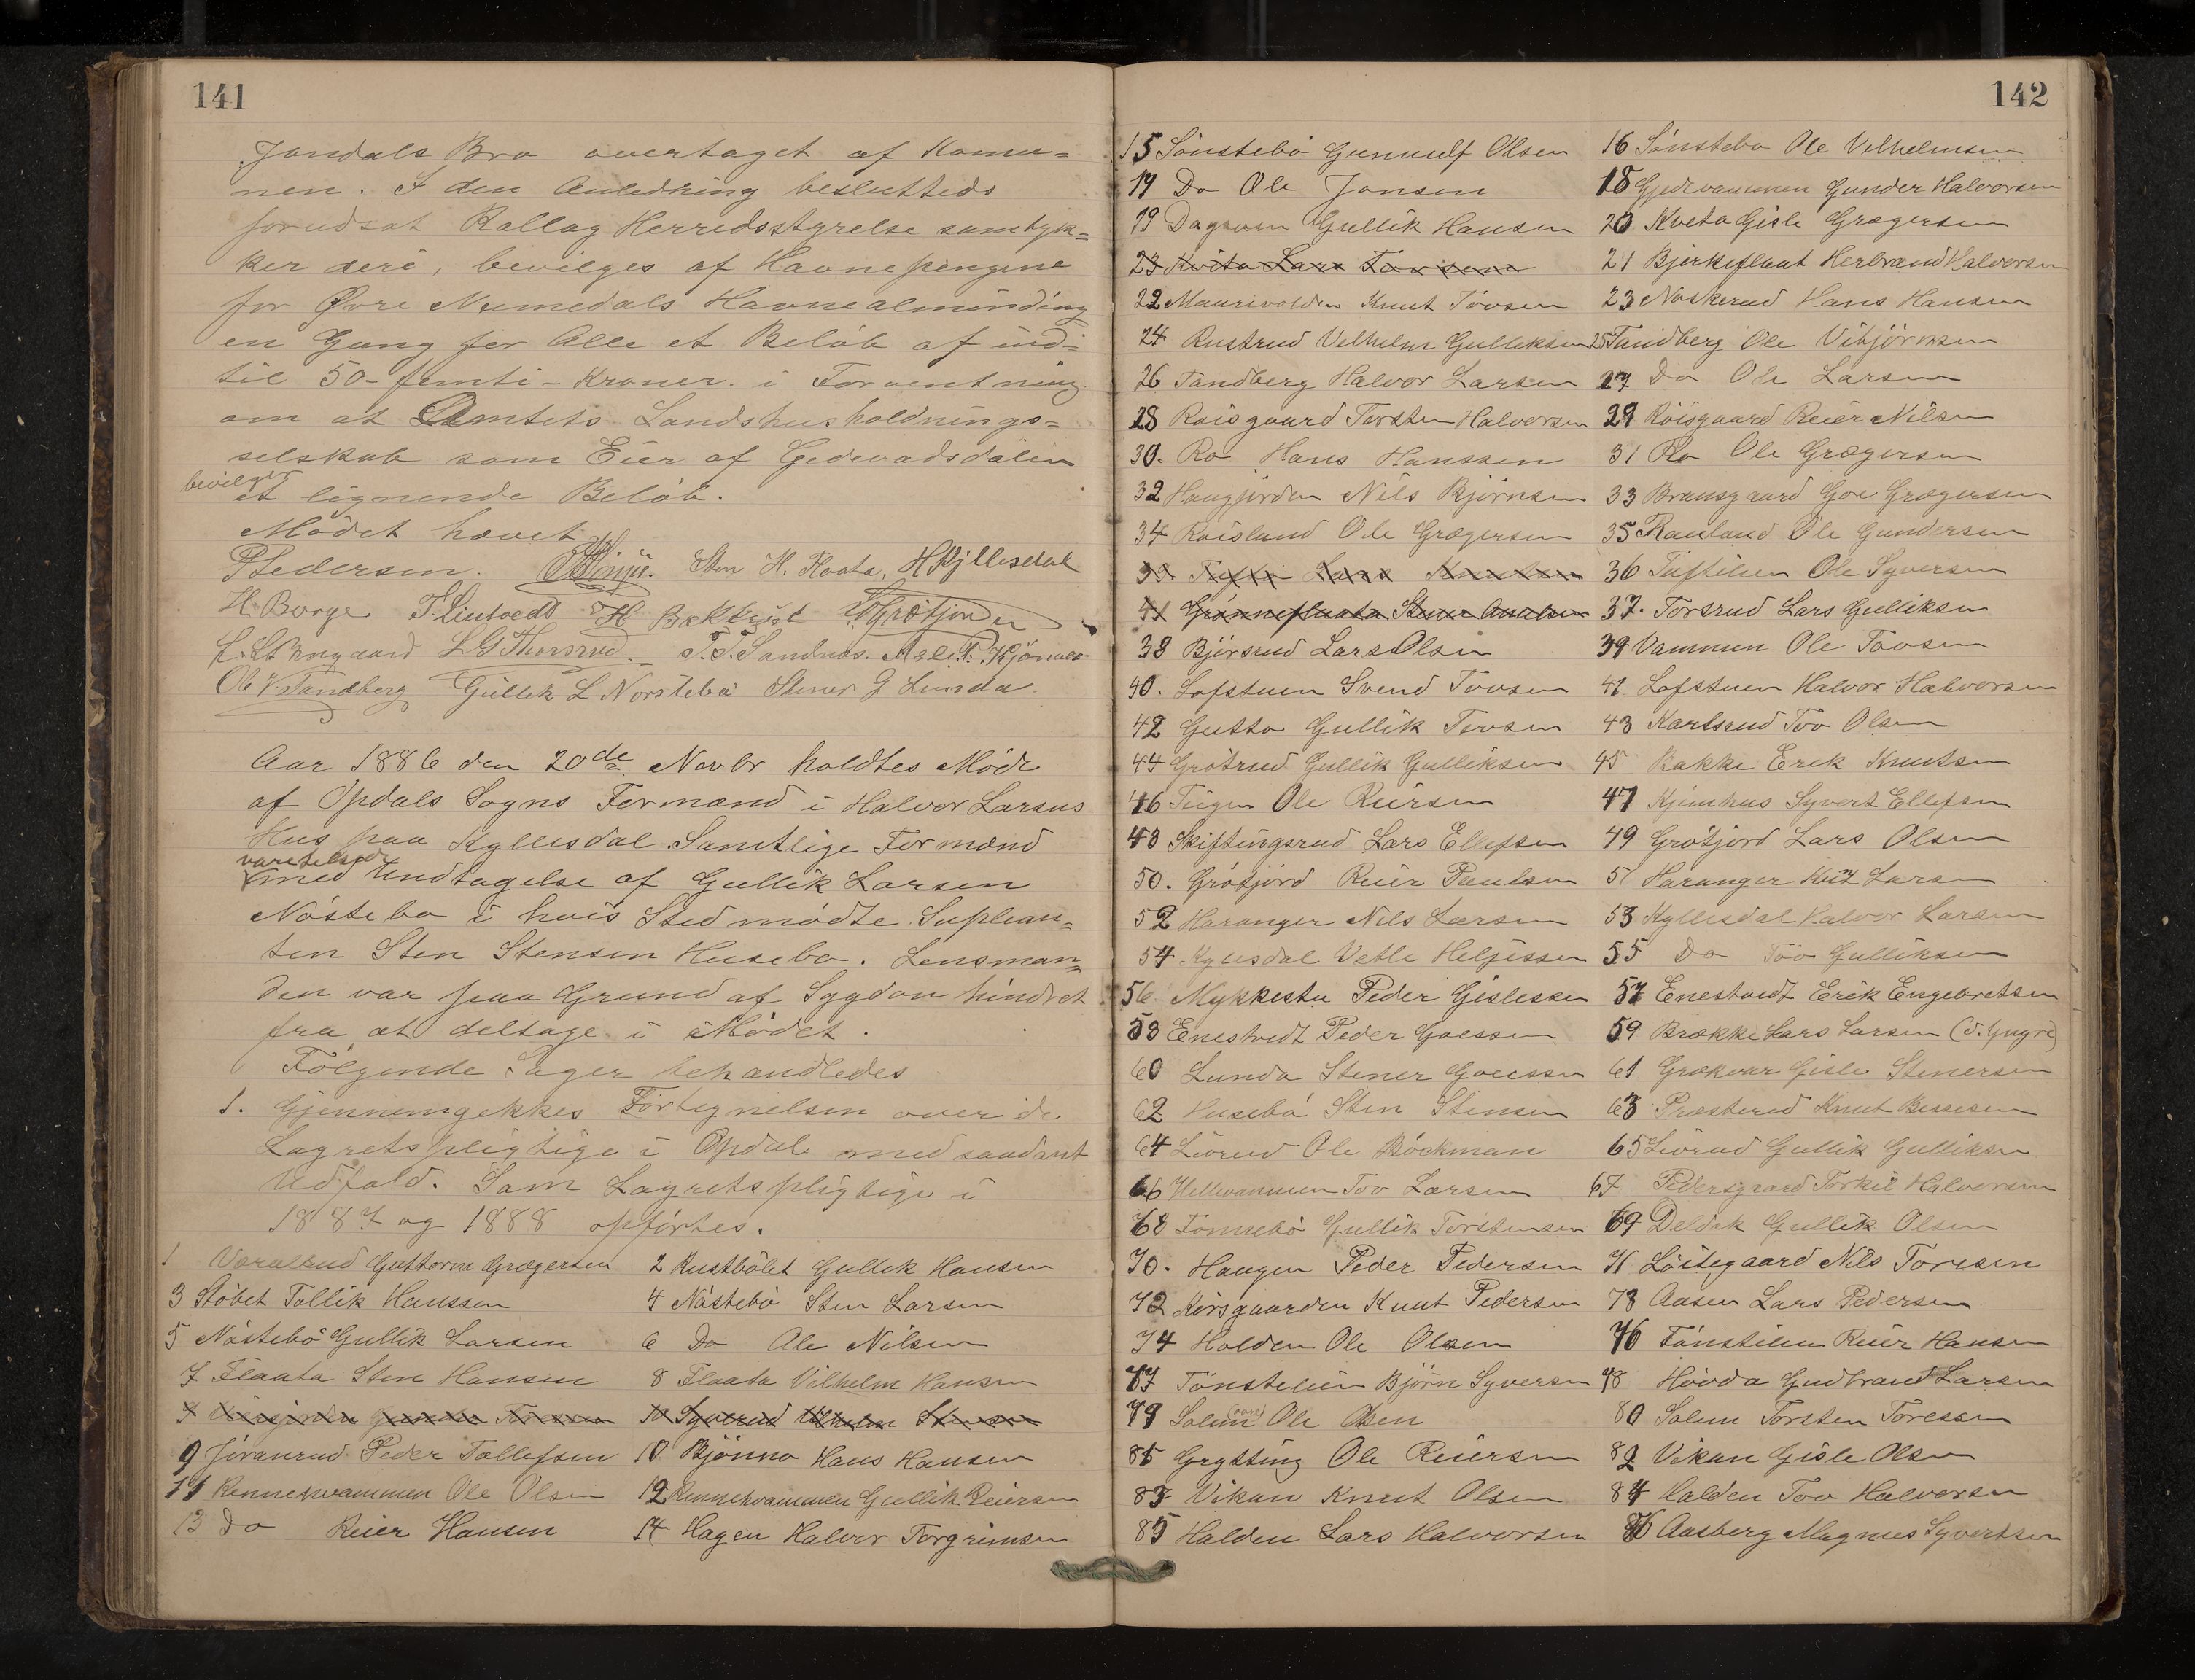 141
Jondals Bro overtaget af Komu=
nen. I den Anledning beslutteds
forudsat Rollag Herredsstyrelse samtyk=
ker deri, bevilges af Havnepengene
for Øvre Numedals Havnealminding
en Gang for Alle et Beløb af ind=
til 50-femti-Kroner. i Forventning
om at Amtets Landshusholdnings=
selskab som Eier af Gedevadsdalen
bevilger
et lignende Beløb.
Mødet hævet
PPedersen. Sten H. Flaata, H Kjllesdal
H. Borge T. Lintvedt H Bækkejol O Grøtjorden
L. L. Brugaard L G Thorsrud. T. T. Sandnæs. Asle P. Kjønaas
Ole V. Tandberg Gullik L Norstebø Stener G Lunda.
Aar 1886 den 20de Novbr holdtes Møde
af Opdals Sogns Formænd i Halvor Larsens
Hus paa Kyllesdal. Samtlige Formænd
var tilstede
med Undtagelse af Gullik Larsen
Nöstebø i hvis Sted mødte Suplean=
ten Sten Stensen Husebø. Lensman=
den var paa Grund af Sygdom hindret
fra at deltage i Mødet.
Følgende Sager behandledes
1. Gjennemgikkes Fortegnelsen over de
Lagretspligtige i Opdal med saadant
Udfald. Som Lagretspligtige i
1887 og 1888 opførtes.
1 Guttorm Grægersen 2 Rustbölet Gullik Hansen
3 Stöbet Tollik Hanssen 4 Nöstebø Sten Larsen
5 Nöstebö Gullik Larsen 6 Do Ole Nilsen
7 Flaata Sten Hansen 8 Flaata Vilhelm Hansen
10 Syverud Vilhelm Stensen
9 Jöranrud Peder Tollefsen 10 Bjönno Hans Hansen
11 Rennehvammen Ole Olsen 12 Rennehvammen Gullik Reiersen
13 Do Reier Hansen 14 Hagen Halvor Torgrimsen
142
15 Sönstebö Gunnulf Olsen 16 Sönstebø Ole Velhelmsen
17 Do Ole Jonsen 18 Gjedevammen Gunder Halvorsen
19 Dagsven Gullik Hansen 20 Kveta Gisle Grægersen
23 Kvita Lars Torsens 21 Bjerkeflaat Herbrand Halvorsen
22 Maurivolden Knut Tovsen 23 Noskerud Hans Hansen
24 Rustrud Velhelm Gulliksen 25 Tandberg Ole Vibjörnsen
26 Tandberg Halvor Larsen 27 Do Ole Larsen
28 Roisgaard Torsten Halvorsen 29 Röisgaard Reier Nilsen
30. Ro Hans Hanssen 31 Ro Ole Grægersen
32 Haugjorden Nils Björnsen 33 Brunsgaard Goe Grægersen
34 Roisland Ole Grægersen 35 Rauland Ole Gundersen
36 Tuftelien Ole Syversen
41 Grønneflaata 37. Torsrud Lars Gulliksen
38 Björsrud Lars Olsen 39 Vammen Ole Tovsen
40. Lofstuen Svend Tovsen 41 Lofstuen Halvor Halvorsen
42 Gutto Gullik Tovsen 43 Karlsrud Tov Olsen
44 Grötrud Gullik Gulliksen 45 Bakke Erek Knutsen
46 Teigen Ole Reiersen 47 Kjemhus Syvert Ellefsen
48 Skiftingsrud Lars Ellefsen 49 Grötjord Lars Olsen
50. Grötjord Reier Paulsen 51 Haranger Knut Larsen
52 Haranger Nils Larsen 53 Kyllesdal Halvor Larsen
54 Kylesdal Vetle Heljessen 55 Do Töv Gulliksen
56 Mykkestu Peder Gislessen 57 Enestvedt Erik Engebretsen
58 Enestvedt Peder Goessen 59 Brække Lars Larsen (d. Yngre)
60 Lunda Stener Goessen 61 Grøkvar Gisle Stenersen
62 Husebö Sten Stensen 63 Præsterud Knut Bessesen
64 Livrud Ole Böckman 65 Livrud Gullik Gulliksen
66 Hellevammen Tov Larsen 67 Pedersgaard Torkil Halvorsen
68 Tonnebö Gullik Torstensen 69 Deldek Gullik Olsen
70. Haugen Peder Pedersen 71 Löitegaard Nils Toresen
72 Korsgaarden Knut Pedersen 73 Aasen Lars Pedersen
74 Holden Ole Olsen 76 Tönstelien Reier Hansen
77 Tönstelien Björn Syversen 78 Hövda Gudbrand Larsen
79 Solem Ole Olsen 80 Solem Torsten Toresen
81 Grytting Ole Reiersen 82 Vikan Gisle Olsen
83 Vikan Knut Olsen 84 Halden Tov Halvorsen
85 Halden Lars Halvorsen 86 Aasberg Magnus Syvertsen